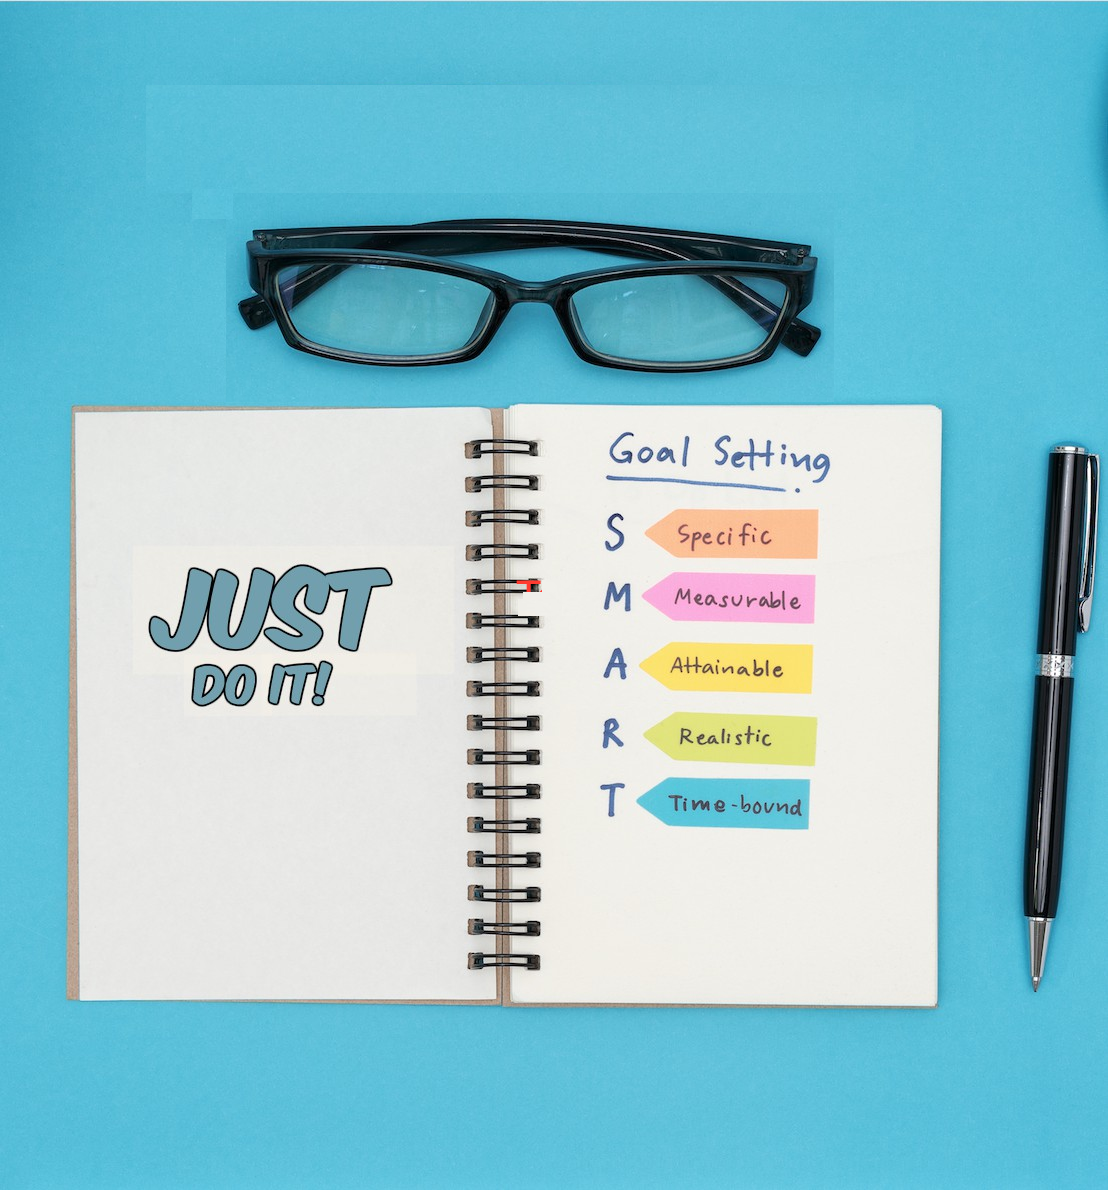 JUST
DO IT!
Goal Setting
S Specific
M Measurable
A Attainable
R Realistic
T Time-bound